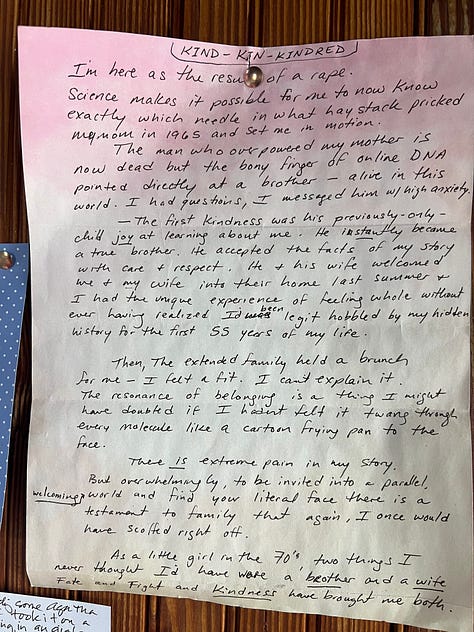 KIND-KIN-KINDRED
I'm here as the result of a rape.
Science makes it possible for me to now know
exactly which needle in what hay stack pricked
my mom in 1965 and set me in motion.
The man who overpowered my mother is
now dead but the bony finger of online DNA
pointed directly at a brother – alive in this
world. I had questions, I messaged him w/ high anxiety.
– The first kindness was his previously-only-
child joy at learning about me. He instantly became
a true brother. He accepted the facts of my story
with care & respect. He & his wife welcomed
me & my wife into their home last summer &
I had the unique experience of feeling whole without
ever having realized I'd been legit hobbled by my hidden
history for the first 55 years of my life.
Then, The extended family held a brunch
for me – I felt a fit. I can't explain it.
The resonance of belonging is a thing I might
have doubted if I hadn't felt it twang through
every molecule like a cartoon frying pan to the
face.
There is extreme pain in my story.
But overwhelmingly, to be invited into a parallel,
welcoming world and find your literal face there is a
testament to family that again, I once would
have scoffed right off.
As a little girl in the 70's two things I
never thought I'd have were a brother and a wife
Fate and Fight and Kindness have brought me both.
come Agatha
took it on a